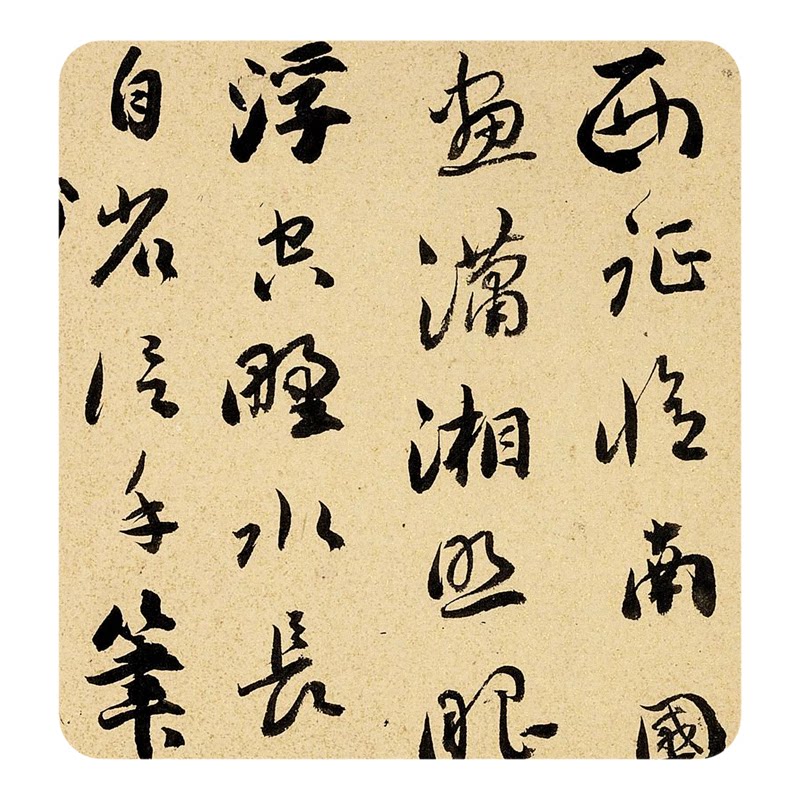 西征憶南國
畫瀟湘照眼
浮空野水長
自省信手筆